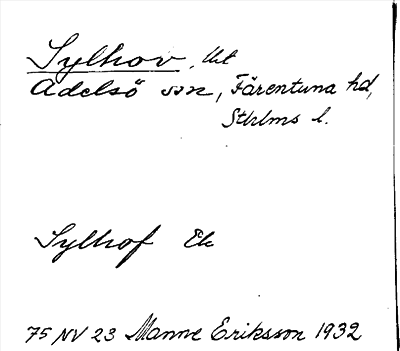 Sylhov, Utt
Adelsö sn, Färentuna hd,
Sthlms l.
Sylhof Ek
75 NV 23 Manne Eriksson 1932